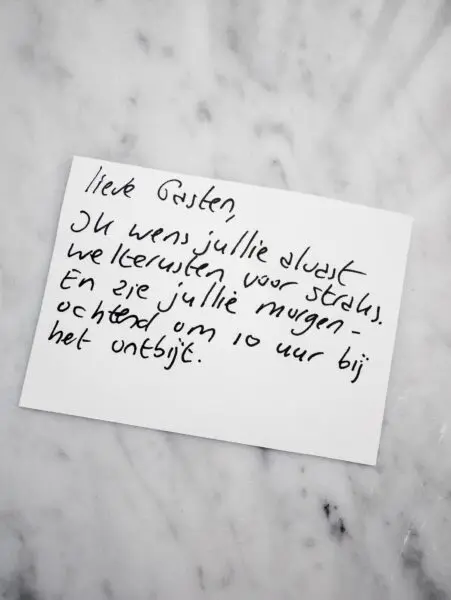 lieve Gasten,
Ik wens jullie alvast
welterusten voor straks.
En zie jullie morgen-
ochtend om 10 uur bij
het ontbijt.